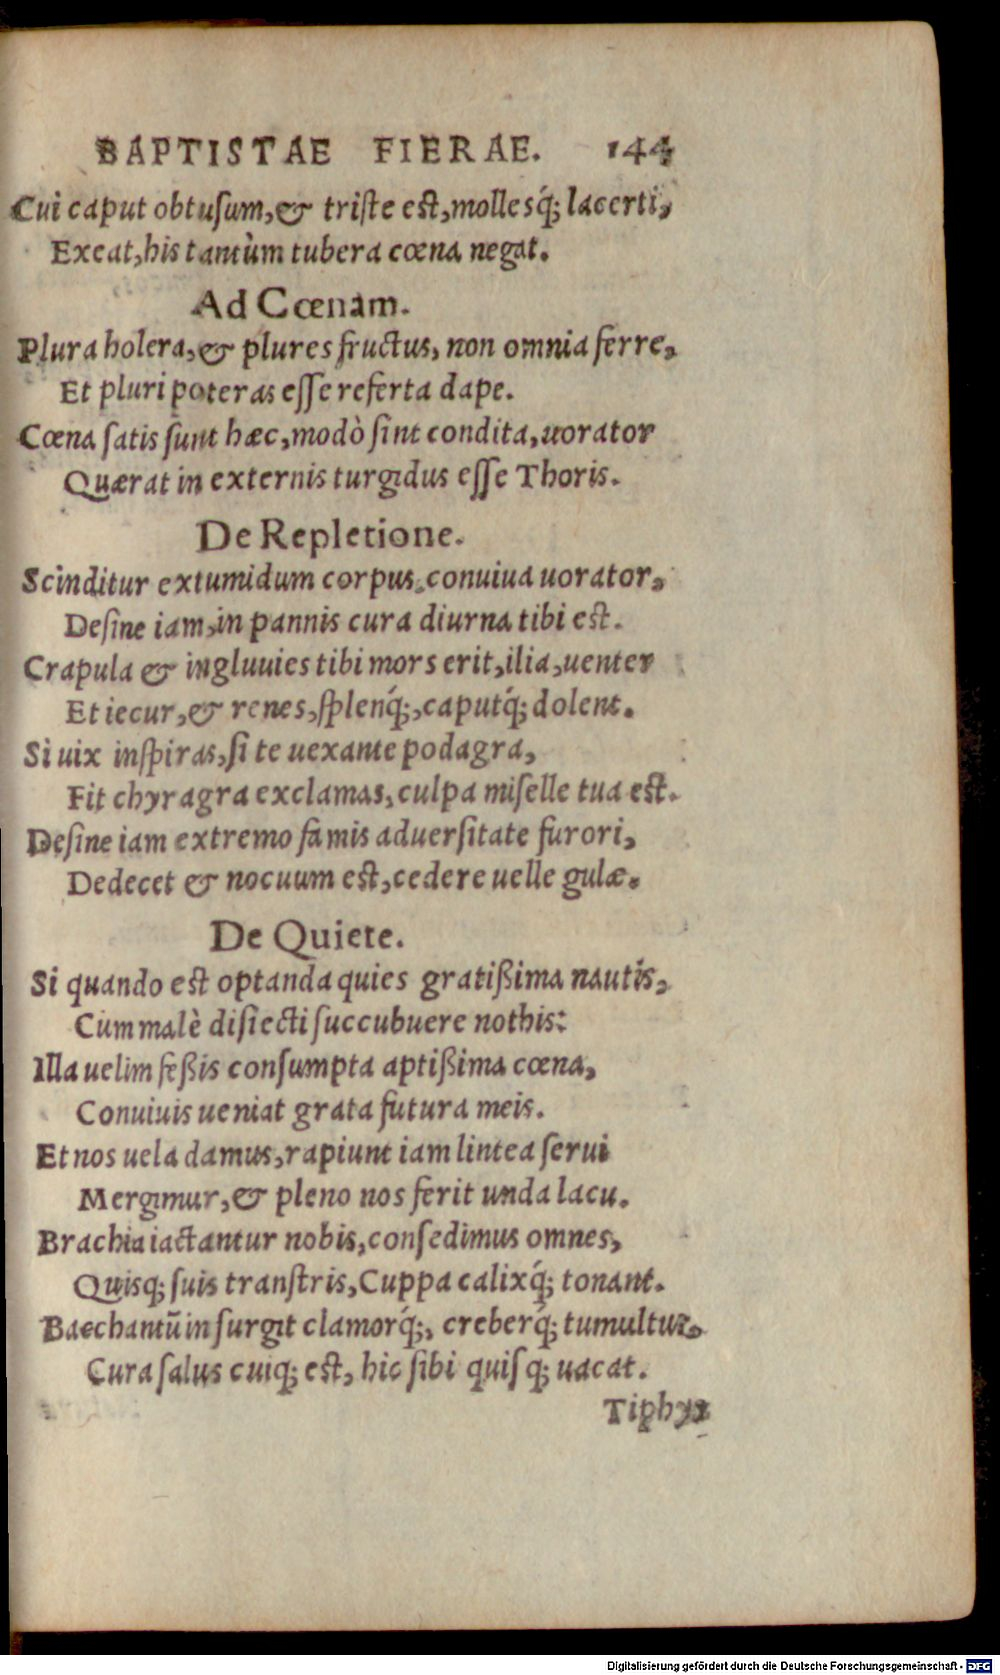 BAPTISTAE FIERAE. 144
Cui caput obtuſum,& triſte eſt,mollesq́; lacerti,
Exeat,his tantùm tubera cœna negat.
Ad Cœnam.
Plura holera,& plures fructus, non omnia ferre,
Et pluri poteras eſſe referta dape.
Cœna ſatis ſunt hæc,modò ſint condita,uorator
Quærat in externis turgidus eſſe Thoris.
De Repletione.
Scinditur extumidum corpus,conuiua uorator,
Deſine iam,in pannis cura diurna tibi eſt.
Crapula & ingluuies tibi mors erit,ilia,uenter
Et iecur,& renes,ſplenq́;,caputq́; dolent.
Si uix inſpiras,ſi te uexante podagra,
Fit chyragra exclamas,culpa miſelle tua eſt.
Deſine iam extremo famis aduerſitate furori,
Dedecet & nocuum eſt,cedere uelle gulæ.
De Quiete.
Si quando eſt optanda quies gratißima nautis,
Cum malè diſiecti ſuccubuere nothis:
Illa uelim feßis conſumpta aptißima cœna,
Conuiuis ueniat grata futura meis.
Et nos uela damus,rapiunt iam lintea ſerui
Mergimur,& pleno nos ferit unda lacu.
Brachia iactantur nobis,conſedimus omnes,
Quisq; ſuis tranſtris,Cuppa calixq́; tonant.
Bacchantũ inſurgit clamorq́;, creberq́; tumultus,
Cura ſalus cuiq; eſt, hic ſibi quiſq; uacat.
Tiphys
Digitalisierung gefördert durch die Deutsche Forschungsgemeinschaft - DFG